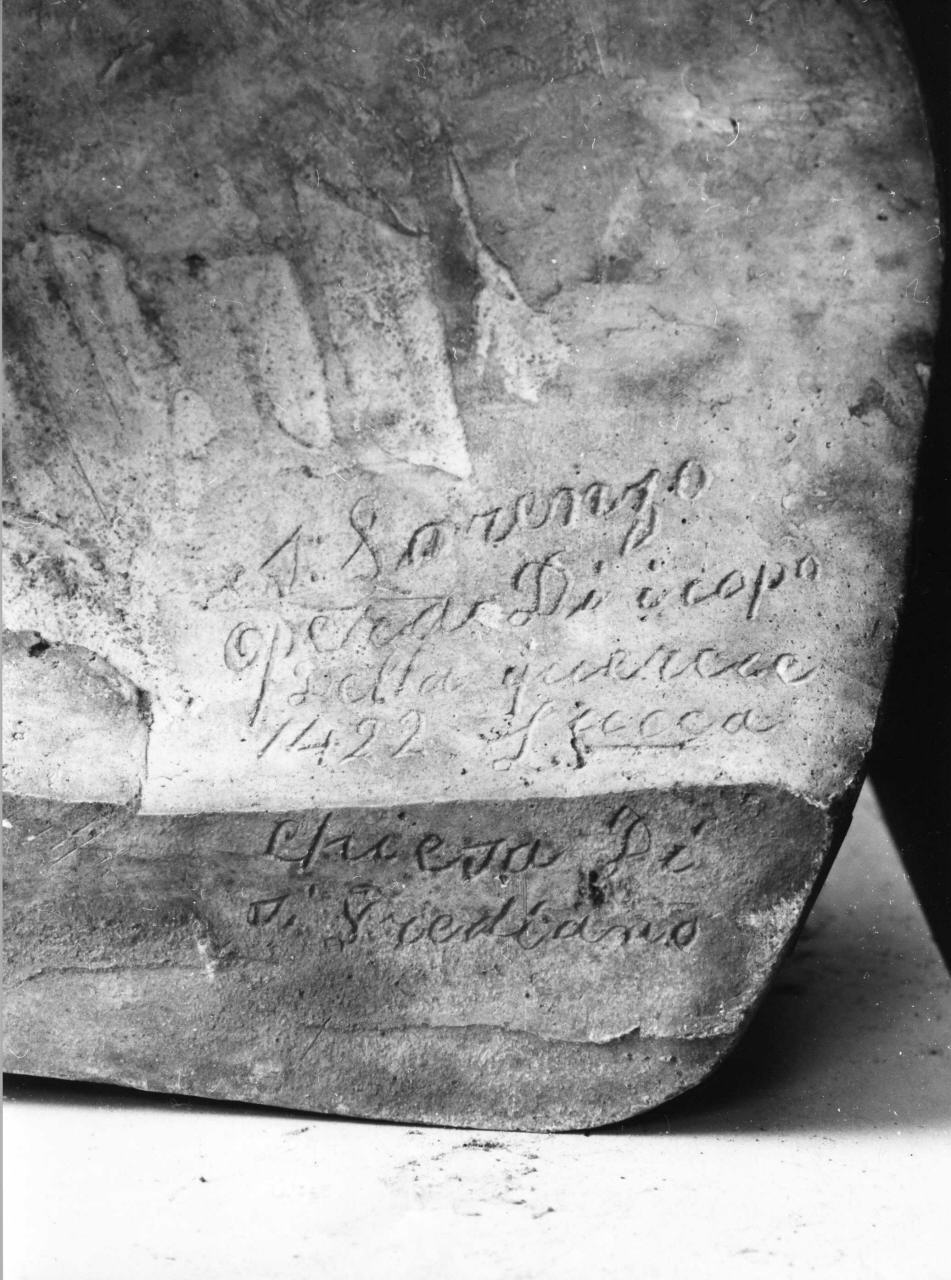 S. Lorenzo
Opera Di icopo
Della quercie
1422 Lucca
Chiesa Di
S. Frediano